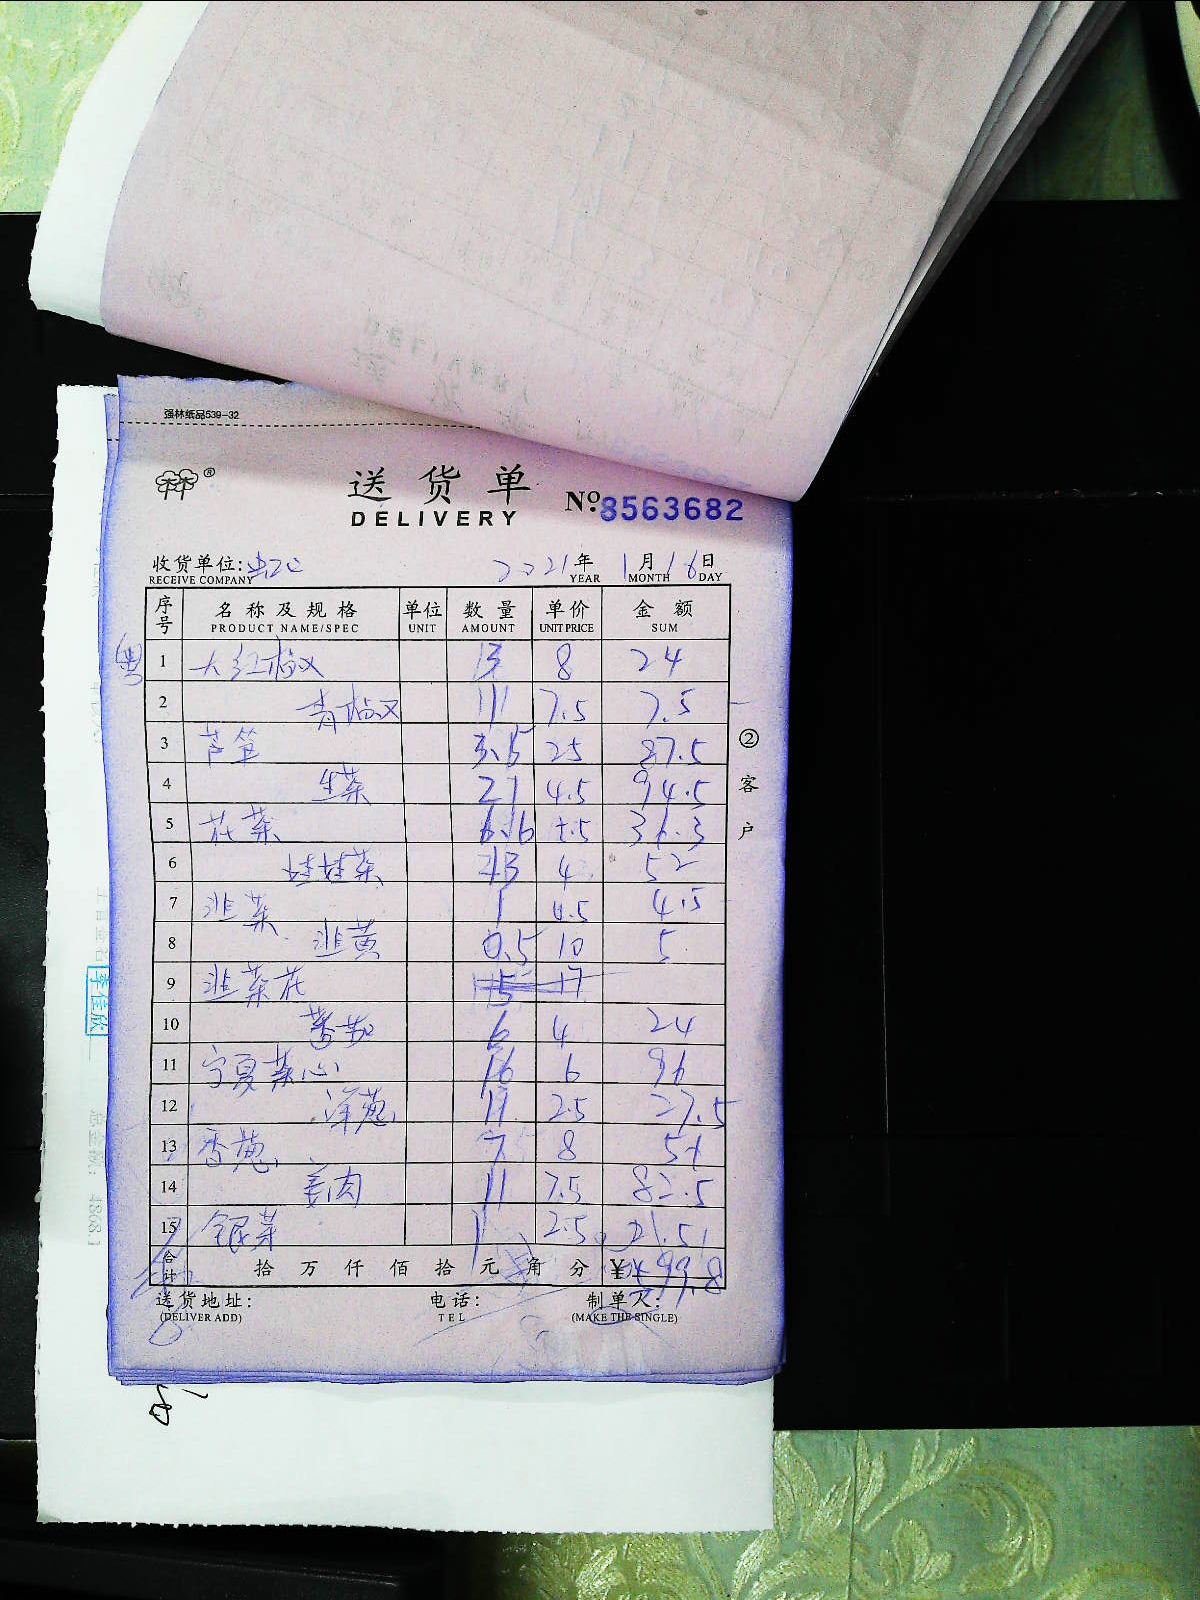 强林纸品539-32
送货单
DELIVERY
Nº 8563682
收货单位: 2021年 1月 16日
RECEIVE COMPANY YEAR MONTH DAY
序号 名称及规格 单位 数量 单价 金额
PRODUCT NAME/SPEC UNIT AMOUNT UNIT PRICE SUM
1 大红椒 3 8 24
2 青椒 1 7.5 7.5
3 芦笋 3.5 25 87.5
4 生菜 21 4.5 94.5
5 花菜 6.6 5.5 36.3
6 娃娃菜 13 4 52
7 韭菜 1 4.5 4.5
8 韭黄 0.5 10 5
9 韭菜花
10 番茄 6 4 24
11 宁夏菜心 16 6 96
12 洋葱 11 2.5 27.5
13 香葱 7 8 56
14 姜肉 11 7.5 82.5
15 银芽 2.5
合计 拾 万 仟 佰 拾 元 角 分 ¥
送货地址: 电话: 制单人:
(DELIVER ADD) TEL (MAKE THE SINGLE)
②客户
李佳欣
总金额: 4868.1